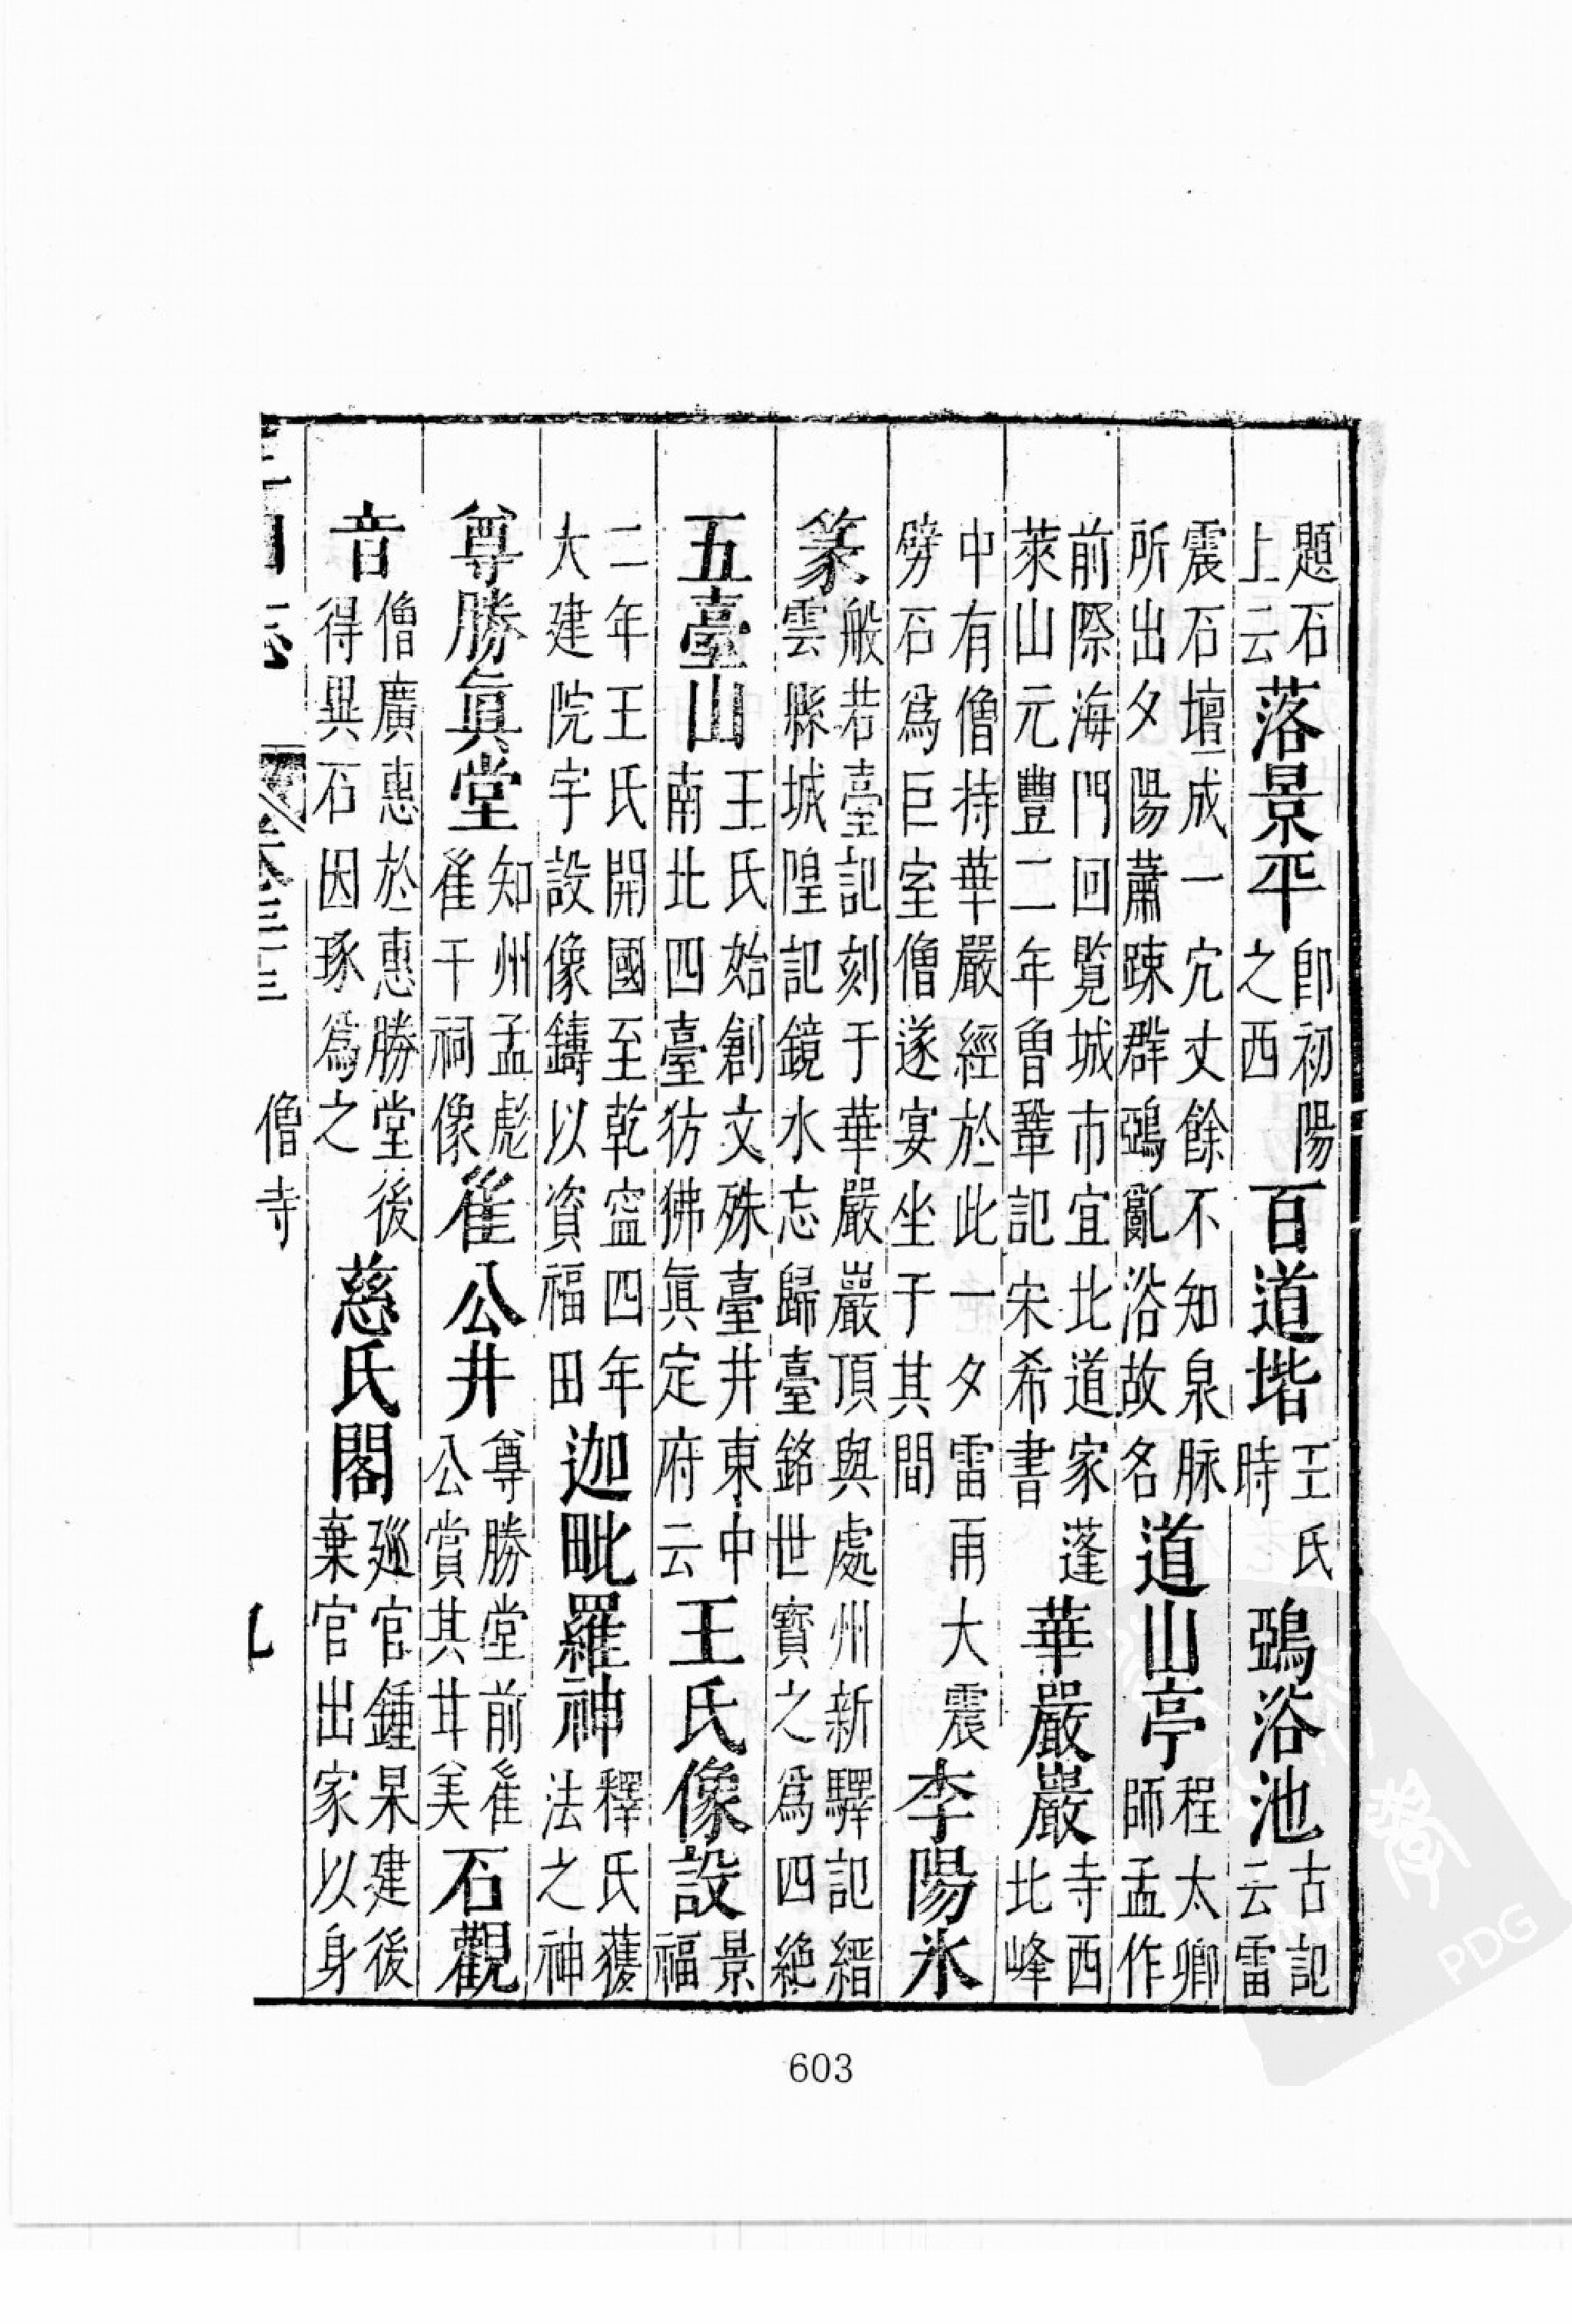 題石上云落景平即初陽之西百道堦王氏時鵶浴池古記云雷
震石壇成一穴丈餘不知泉脉所出夕陽蕭踈群鵶亂浴故名道山亭程太卿師孟作
前際海門回覽城市宜北道家蓬萊山元豐二年曾鞏記宋希書華嚴巖寺西北峰
中有僧持華嚴經於此一夕雷雨大震劈石爲巨室僧遂宴坐于其間李陽氷
篆般若臺記刻于華嚴巖頂與處州新驛記縉雲縣城隍記鏡水忘歸臺銘世寶之爲四絶
五臺山王氏始創文殊臺井東中南北四臺彷彿眞定府云王氏像設景福
二年王氏開國至乾寧四年大建院宇設像鑄以資福田迦毗羅神釋氏獲法之神
尊勝眞堂知州孟彪崔干祠像崔公井尊勝堂前崔公賞其甘美石觀
音僧廣惠於惠勝堂後得異石因琢爲之慈氏閣巡官鍾杲建後棄官出家以身
卷三十三 僧寺
603
PDG